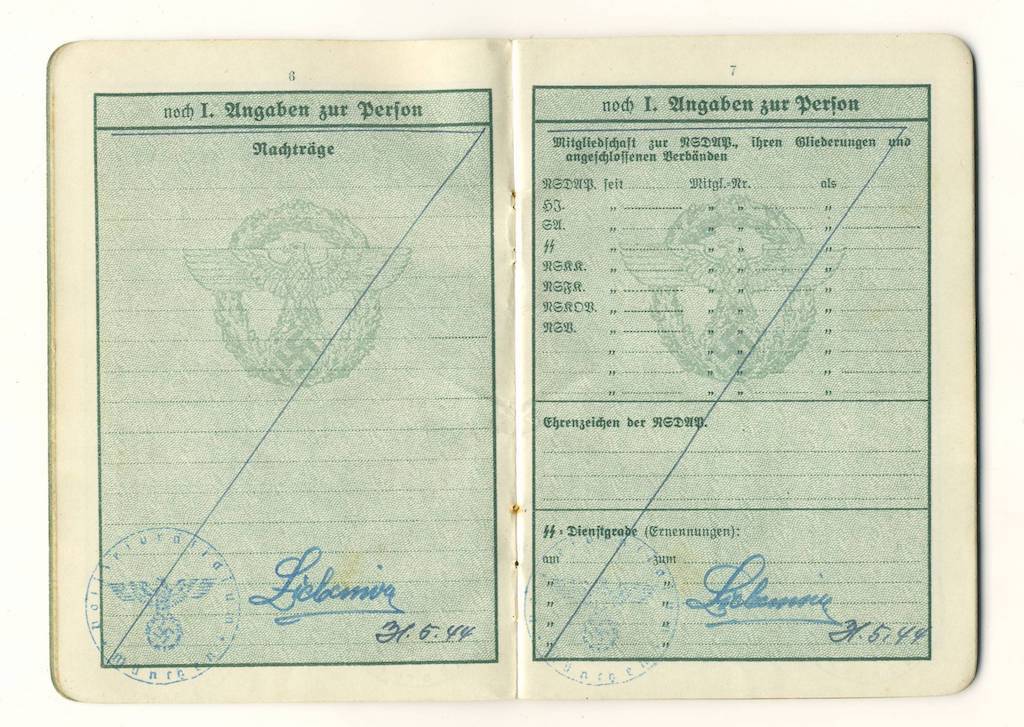 6
noch I. Angaben zur Person
Nachträge
31.5.44
7
noch I. Angaben zur Person
Mitgliedschaft zur NSDAP., ihren Gliederungen und
angeschlossenen Verbänden
NSDAP. seit Mitgl.-Nr. als
HJ. " " " "
SA. " " " "
SS " " " "
NSKK. " " " "
NSFK. " " " "
NSKOV. " " " "
NSV. " " " "
" " " "
" " " "
" " " "
Ehrenzeichen der NSDAP.
SS-Dienstgrade (Ernennungen):
am zum
" "
" "
" "
" "
31.5.44